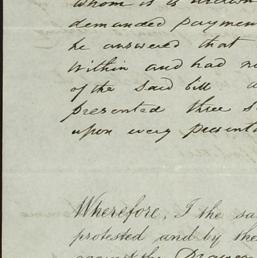 whom it is drawn
demanded paymen
he answered that
within and had no
of the said bill
presented three s
upon every presenta
Wherefore, I the sa
protested and by the
against the Drawer